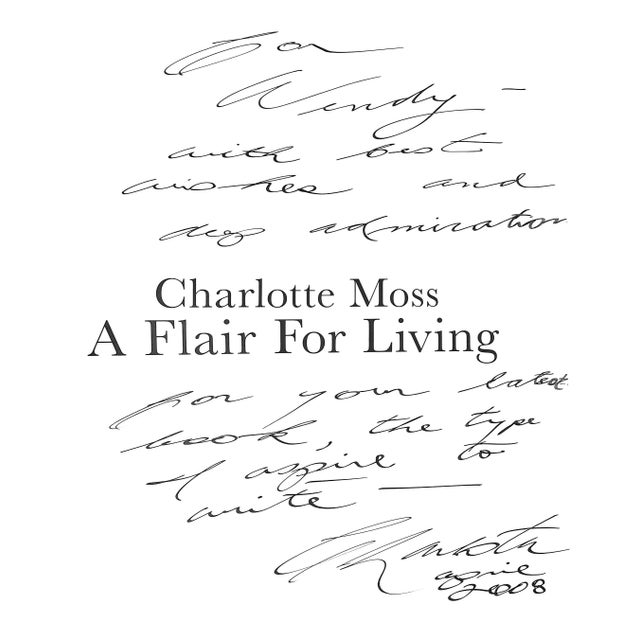 for
Wendy —
with best
wishes and
deep admiration
Charlotte Moss
A Flair For Living
for your latest
book, the type
I aspire to
write —
Charlotte
april
2008